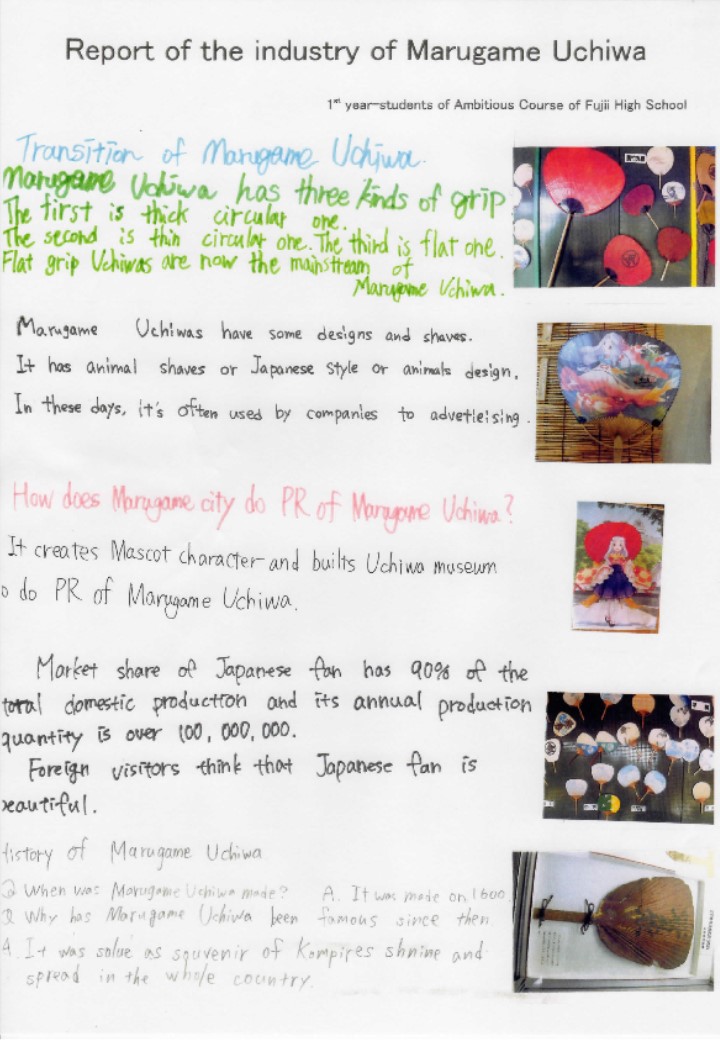 Report of the industry of Marugame Uchiwa
1st year-students of Ambitious Course of Fujii High School
Transition of Marugame Uchiwa.
Marugame Uchiwa has three kinds of grip.
The first is thick circular one.
The second is thin circular one. The third is flat one.
Flat grip Uchiwas are now the mainstream of
Marugame Uchiwa.
Marugame Uchiwas have some designs and shaves.
It has animal shaves or Japanese style or animals design.
In these days, it's often used by companies to advetieising.
How does Marugame city do PR of Marugame Uchiwa?
It creates Mascot character and builts Uchiwa museum
o do PR of Marugame Uchiwa.
Market share of Japanese fan has 90% of the
total domestic production and its annual production
quantity is over 100,000,000.
Foreign visitors think that Japanese fan is
eautiful.
istory of Marugame Uchiwa
Q When was Marugame Uchiwa made? A. It was made on 1600.
Q Why has Marugame Uchiwa been famous since then
A. It was solve as souvenir of Kompires shnine and
spread in the whole country.